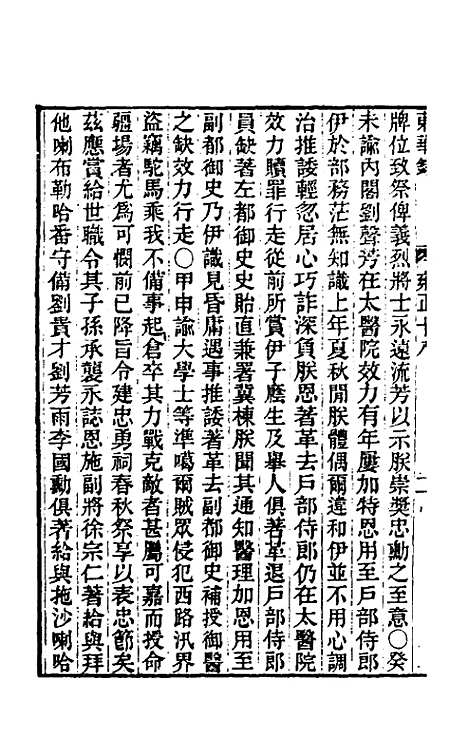 東華錄 雍正十八
牌位致祭俾義烈將士永遠流芳以示朕崇獎忠勳之至意〇癸
未諭內閣劉聲芳在太醫院效力有年屢加特恩用至戶部侍郎
伊於部務茫無知識上年夏秋閒朕體偶爾違和伊並不用心調
治推諉輕忽居心巧詐深負朕恩著革去戶部侍郎仍在太醫院
效力贖罪行走從前所賞伊子廕生及舉人俱著革退戶部侍郎
員缺著左都御史史貽直兼署冀棟朕聞其通知醫理加恩用至
副都御史乃伊識見昏庸遇事推諉著革去副都御史補授御醫
之缺效力行走〇甲申諭大學士等準噶爾賊眾侵犯西路汛界
盜竊駝馬乘我不備事起倉卒其力戰克敵者甚屬可嘉而授命
疆場者尤為可憫前已降旨令建忠勇祠春秋祭享以表忠節矣
茲應賞給世職令其子孫承襲永誌恩施副將徐宗仁著給與拜
他喇布勒哈番守備劉貴才劉芳雨李國勳俱著給與拖沙喇哈